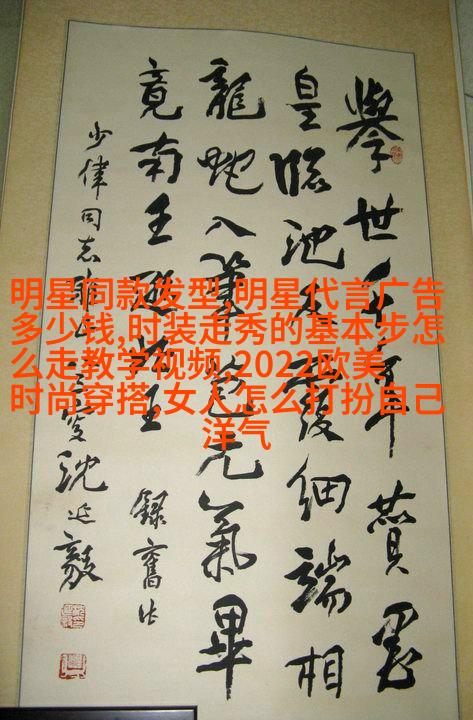 明星同款发型,明星代言广告
多少钱,时装走秀的基本步怎
么走教学视频,2022欧美
时尚穿搭,女人怎么打扮自己
洋气
舉世千年贊墨
皇臨池細端相
龍蛇入筆元氣畢
竟南王北王
錄舊作
少偉同志雅
沈延毅